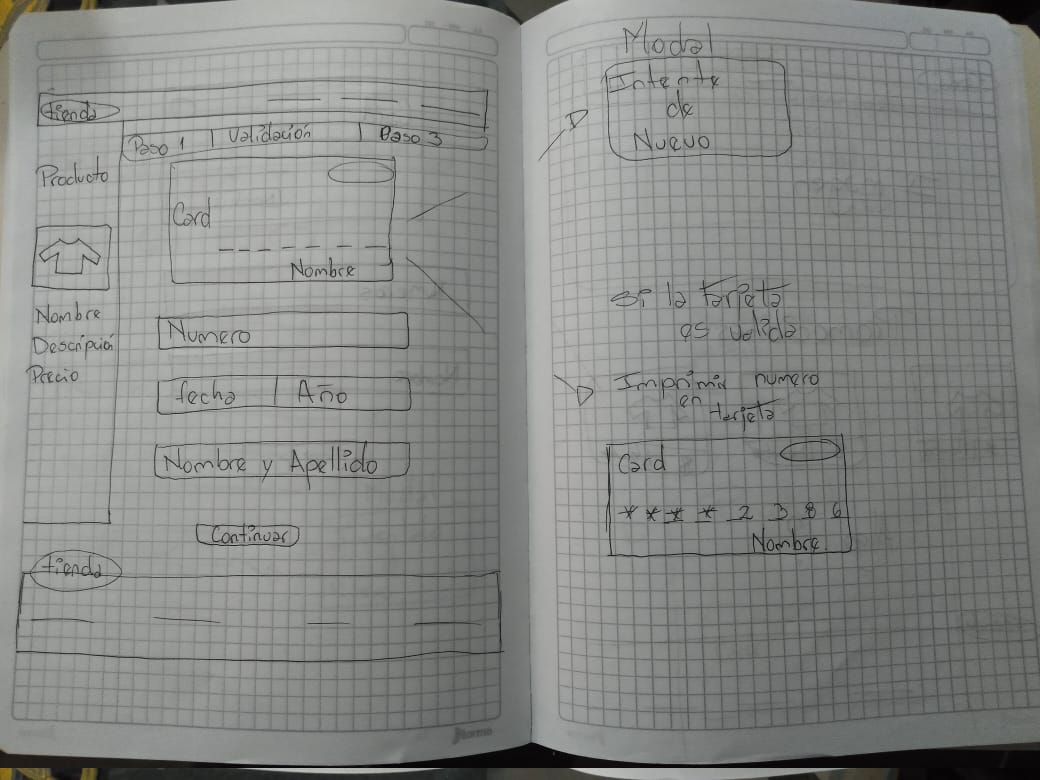 tienda
Paso 1 | Validación | Paso 3
Producto
Card
Nombre
Nombre
Descripción
Precio
Numero
fecha | Año
Nombre y Apellido
Continuar
tienda
Norma
Modal
Intente
de
Nuevo
Si la tarjeta
es valida
Imprimir numero
en
tarjeta
Card
* * * * 2 3 8 6
Nombre